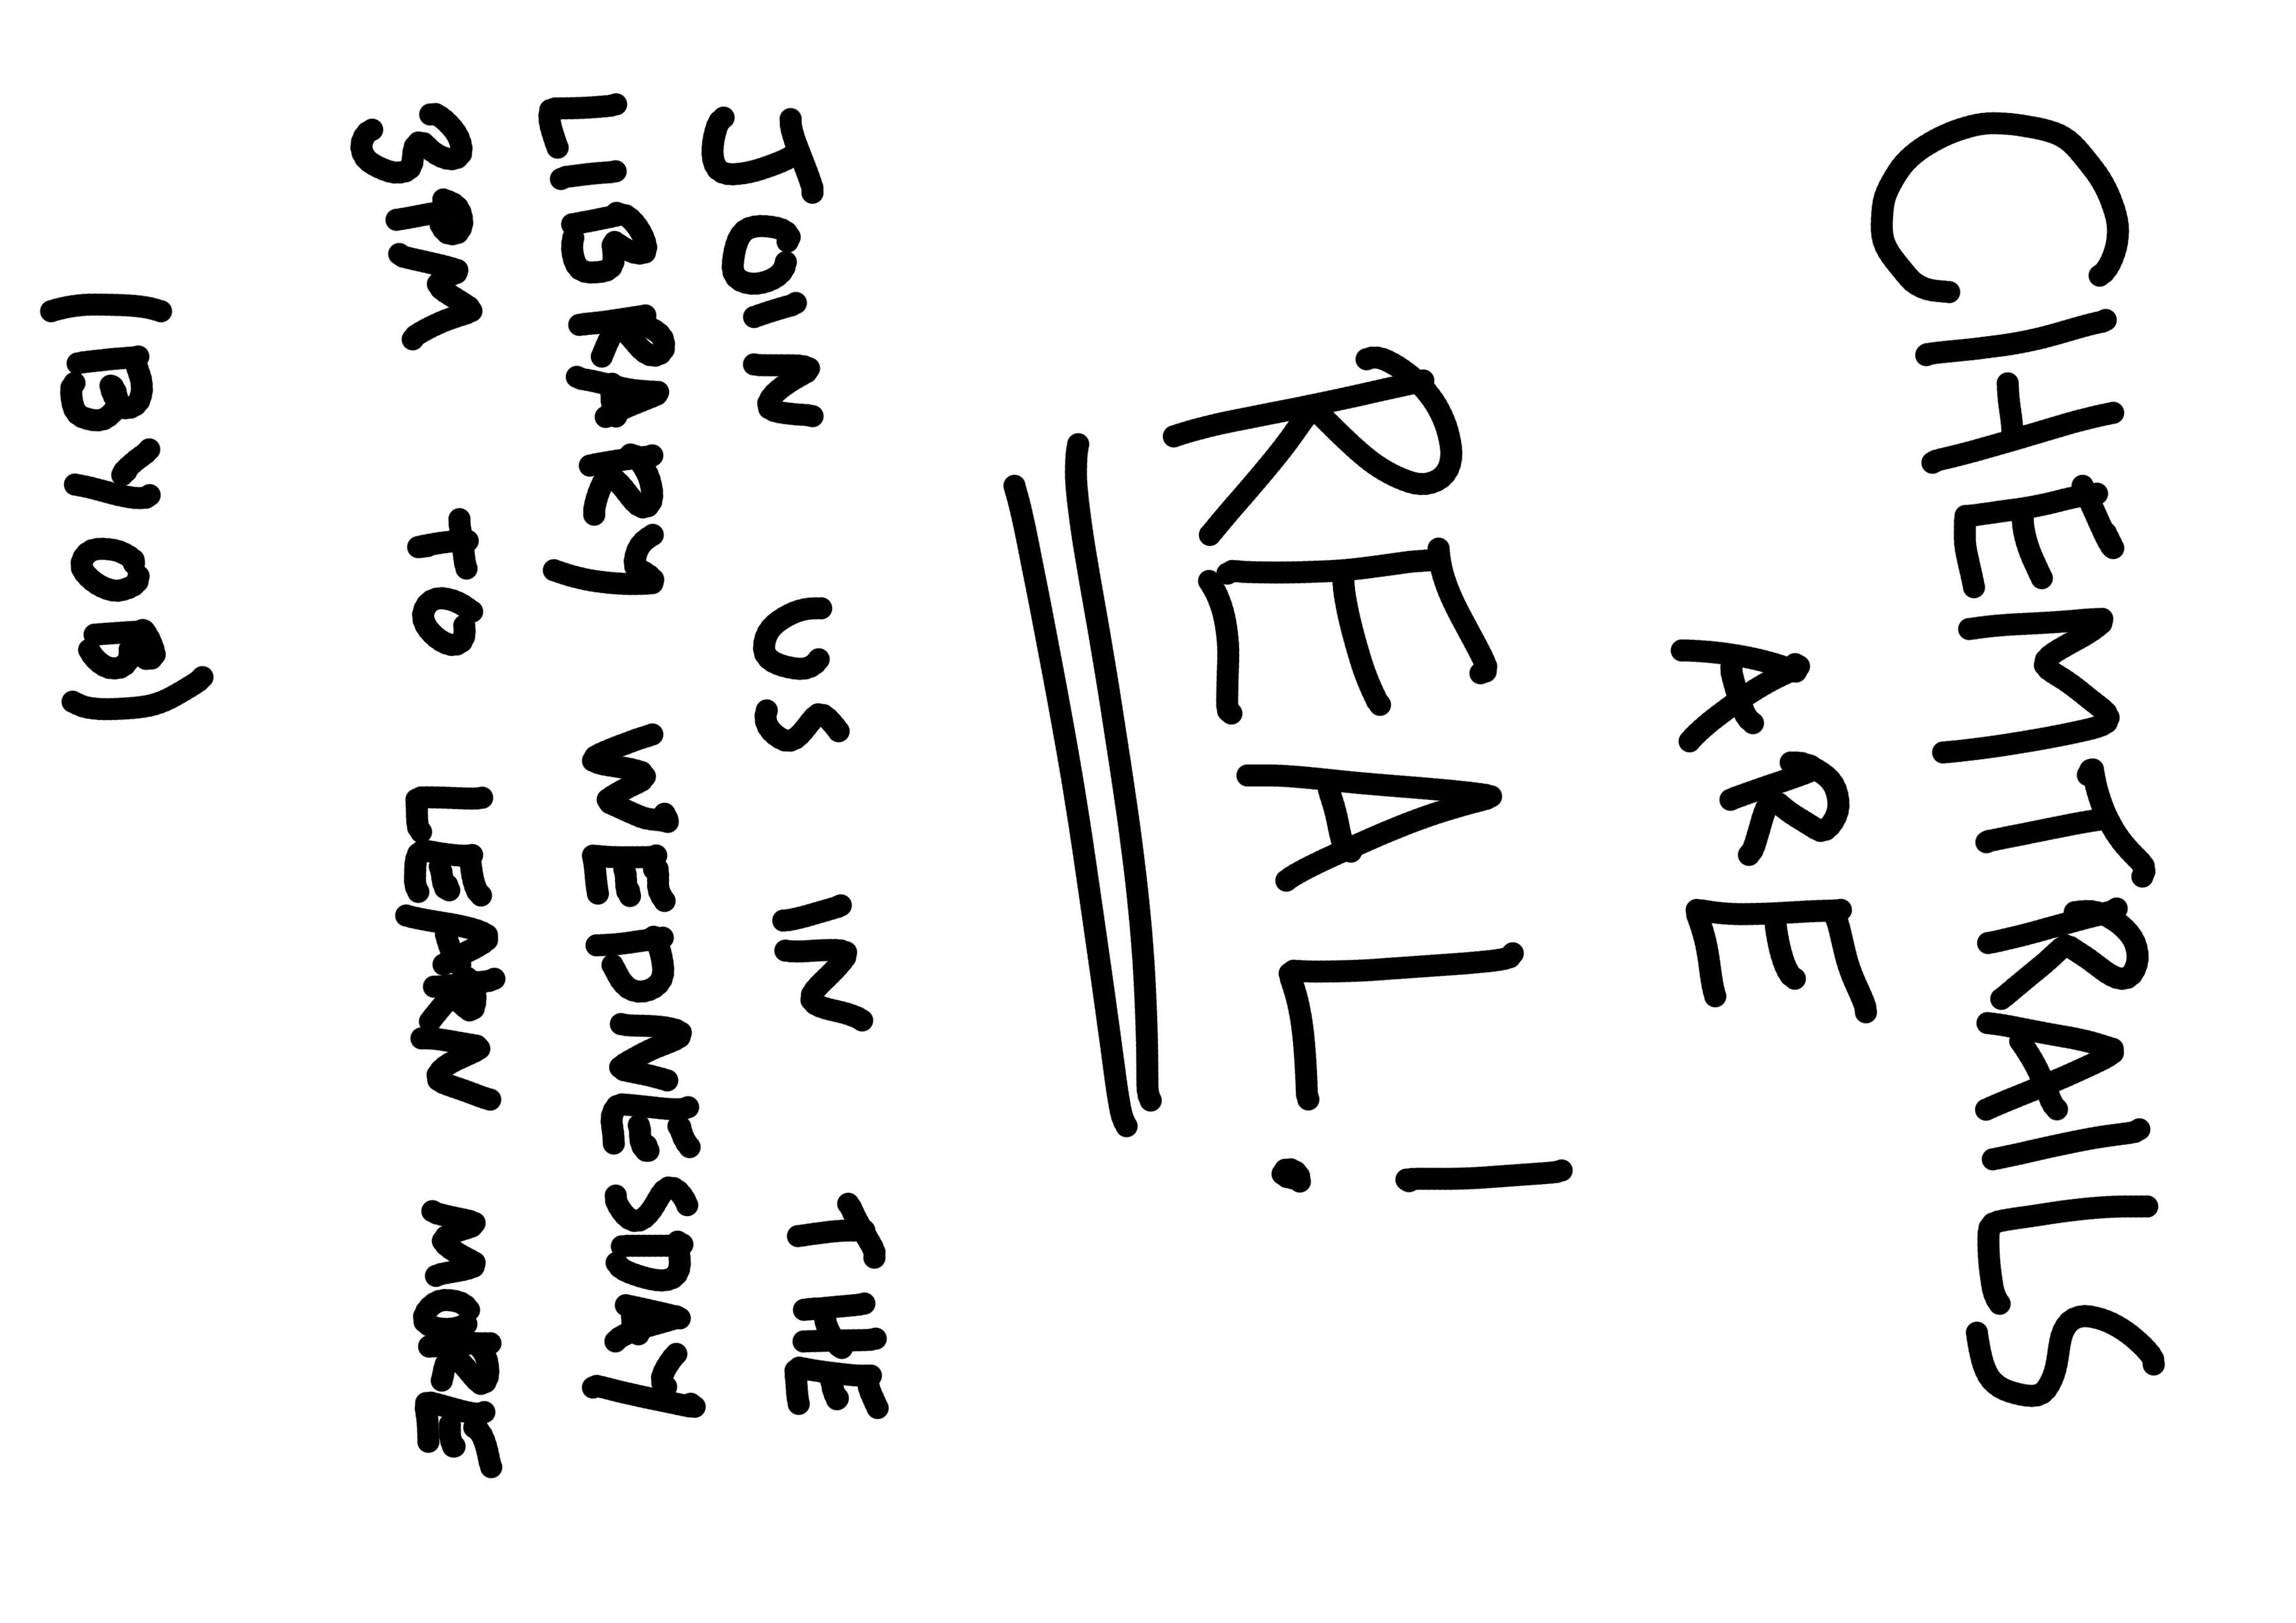 CHEMTRAILS
ARE
REAL!
JOIN US IN THE
LIBRARY WEDNESDAY
3PM TO LEARN MORE
(BYOB)